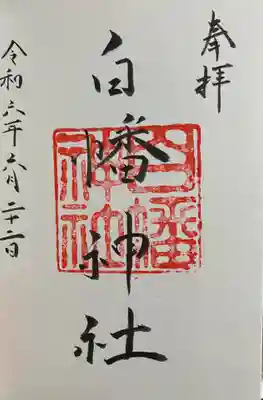 奉拝
白幡神社
白幡
神社
令和六年五月二十二日